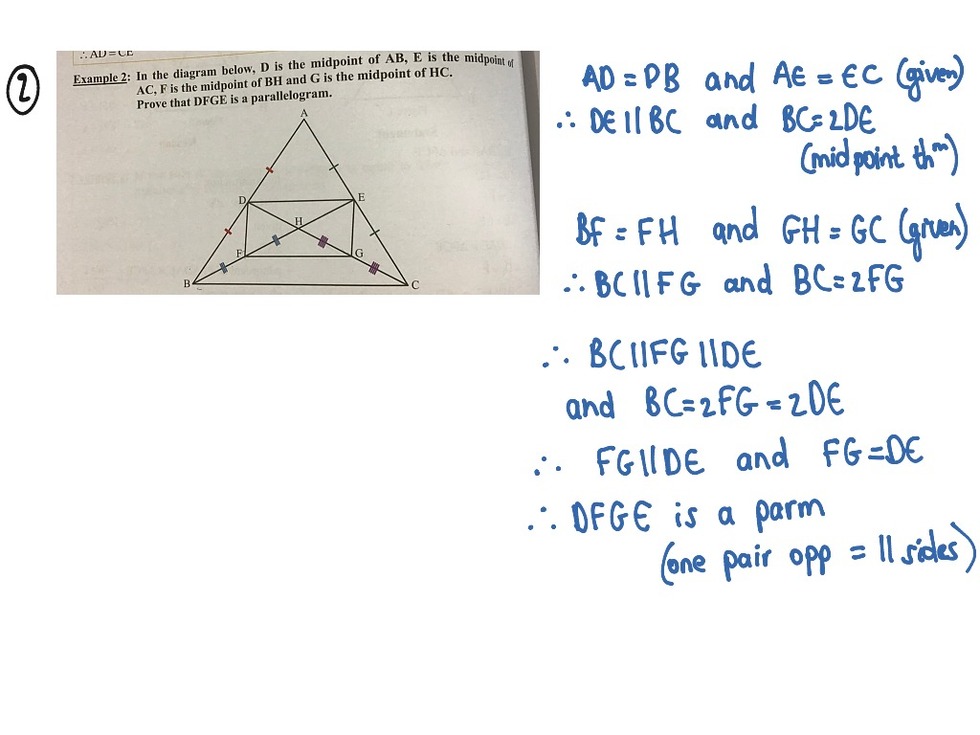 ②
∴ AD = CE
Example 2: In the diagram below, D is the midpoint of AB, E is the midpoint of
AC, F is the midpoint of BH and G is the midpoint of HC.
Prove that DFGE is a parallelogram.
A
D
E
H
F
G
B
C
AD = DB and AE = EC (given)
∴ DE || BC and BC = 2DE
(midpoint thᵐ)
BF = FH and GH = GC (given)
∴ BC || FG and BC = 2FG
∴ BC || FG || DE
and BC = 2FG = 2DE
∴ FG || DE and FG = DE
∴ DFGE is a parm
(one pair opp = || sides)